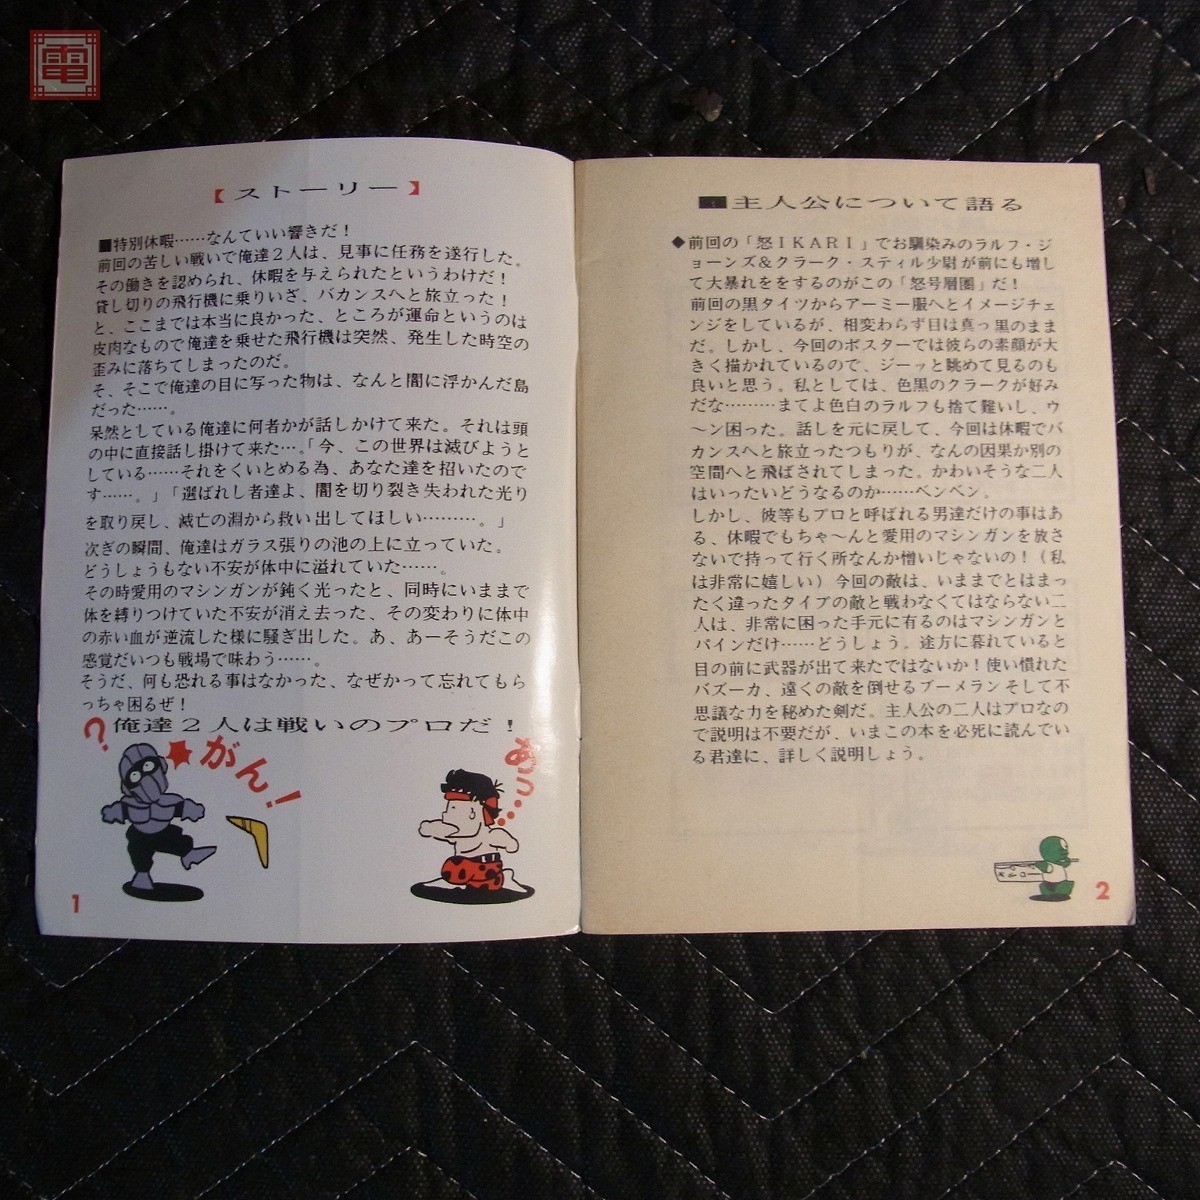 電
【ストーリー】
■特別休暇……なんていい響きだ！
前回の苦しい戦いで俺達２人は、見事に任務を遂行した。
その働きを認められ、休暇を与えられたというわけだ！
貸し切りの飛行機に乗りいざ、バカンスへと旅立った！
と、ここまでは本当に良かった、ところが運命というのは
皮肉なもので俺達を乗せた飛行機は突然、発生した時空の
歪みに落ちてしまったのだ。
そ、そこで俺達の目に写った物は、なんと闇に浮かんだ島
だった……。
呆然としている俺達に何者かが話しかけて来た。それは頭
の中に直接話し掛けて来た…。「今、この世界は滅びようと
している……それをくいとめる為、あなた達を招いたので
す……。」「選ばれし者達よ、闇を切り裂き失われた光り
を取り戻し、滅亡の淵から救い出してほしい………。」
次ぎの瞬間、俺達はガラス張りの池の上に立っていた。
どうしょうもない不安が体中に溢れていた……。
その時愛用のマシンガンが鈍く光ったと、同時にいままで
体を縛りつけていた不安が消え去った、その変わりに体中
の赤い血が逆流した様に騒ぎ出した。あ、あーそうだこの
感覚だいつも戦場で味わう……。
そうだ、何も恐れる事はなかった、なぜかって忘れてもら
っちゃ困るぜ！
俺達２人は戦いのプロだ！
?
★がん！
あっ…
1
■主人公について語る
◆前回の「怒ＩＫＡＲＩ」でお馴染みのラルフ・ジ
ョーンズ＆クラーク・スティル少尉が前にも増し
て大暴れををするのがこの「怒号層圏」だ！
前回の黒タイツからアーミー服へとイメージチェ
ンジをしているが、相変わらず目は真っ黒のまま
だ。しかし、今回のポスターでは彼らの素顔が大
きく描かれているので、ジーッと眺めて見るのも
良いと思う。私としては、色黒のクラークが好み
だな………まてよ色白のラルフも捨て難いし、ウ
〜ン困った。話しを元に戻して、今回は休暇でバ
カンスへと旅立ったつもりが、なんの因果か別の
空間へと飛ばされてしまった。かわいそうな二人
はいったいどうなるのか……ベンベン。
しかし、彼等もプロと呼ばれる男達だけの事はあ
る、休暇でもちゃ〜んと愛用のマシンガンを放さ
ないで持って行く所なんか憎いじゃないの！（私
は非常に嬉しい）今回の敵は、いままでとはまっ
たく違ったタイプの敵と戦わなくてはならない二
人は、非常に困った手元に有るのはマシンガンと
パインだけ……どうしょう。途方に暮れていると
目の前に武器が出て来たではないか！使い慣れた
バズーカ、遠くの敵を倒せるブーメランそして不
思議な力を秘めた剣だ。主人公の二人はプロなの
で説明は不要だが、いまこの本を必死に読んでい
る君達に、詳しく説明しょう。
2